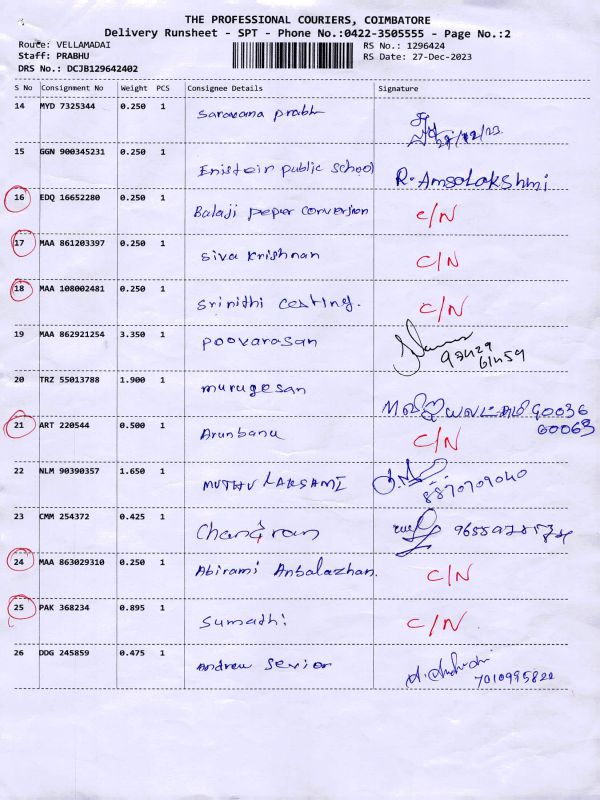 THE PROFESSIONAL COURIERS, COIMBATORE
Delivery Runsheet - SPT - Phone No.:0422-3505555 - Page No.:2
Route: VELLAMADAI RS No.: 1296424
Staff: PRABHU RS Date: 27-Dec-2023
DRS No.: DCJB129642402
S No Consignment No Weight PCS Consignee Details Signature
14 MYD 7325344 0.250 1 Saravana prabh
27/12/23
15 GGN 900345231 0.250 1 Enistein public school R. Amsalakshmi
16 EDQ 16652280 0.250 1 Balaji peper conversion C/N
17 MAA 861203397 0.250 1 Siva krishnan C/N
18 MAA 108002481 0.250 1 Srinithi casting. C/N
19 MAA 862921254 3.350 1 Poovarasan
20 TRZ 55013788 1.900 1 murugesan
90036
60063
21 ART 220544 0.500 1 Arunbanu C/N
22 NLM 90390357 1.650 1 MUTHU LAKSAMI
8870709040
23 CMM 254372 0.425 1 Chandran
24 MAA 863029310 0.250 1 Abirami Anbalazhan. C/N
25 PAK 368234 0.895 1 Sumathi C/N
26 DDG 245859 0.475 1 Andrew Sevior
7010995822